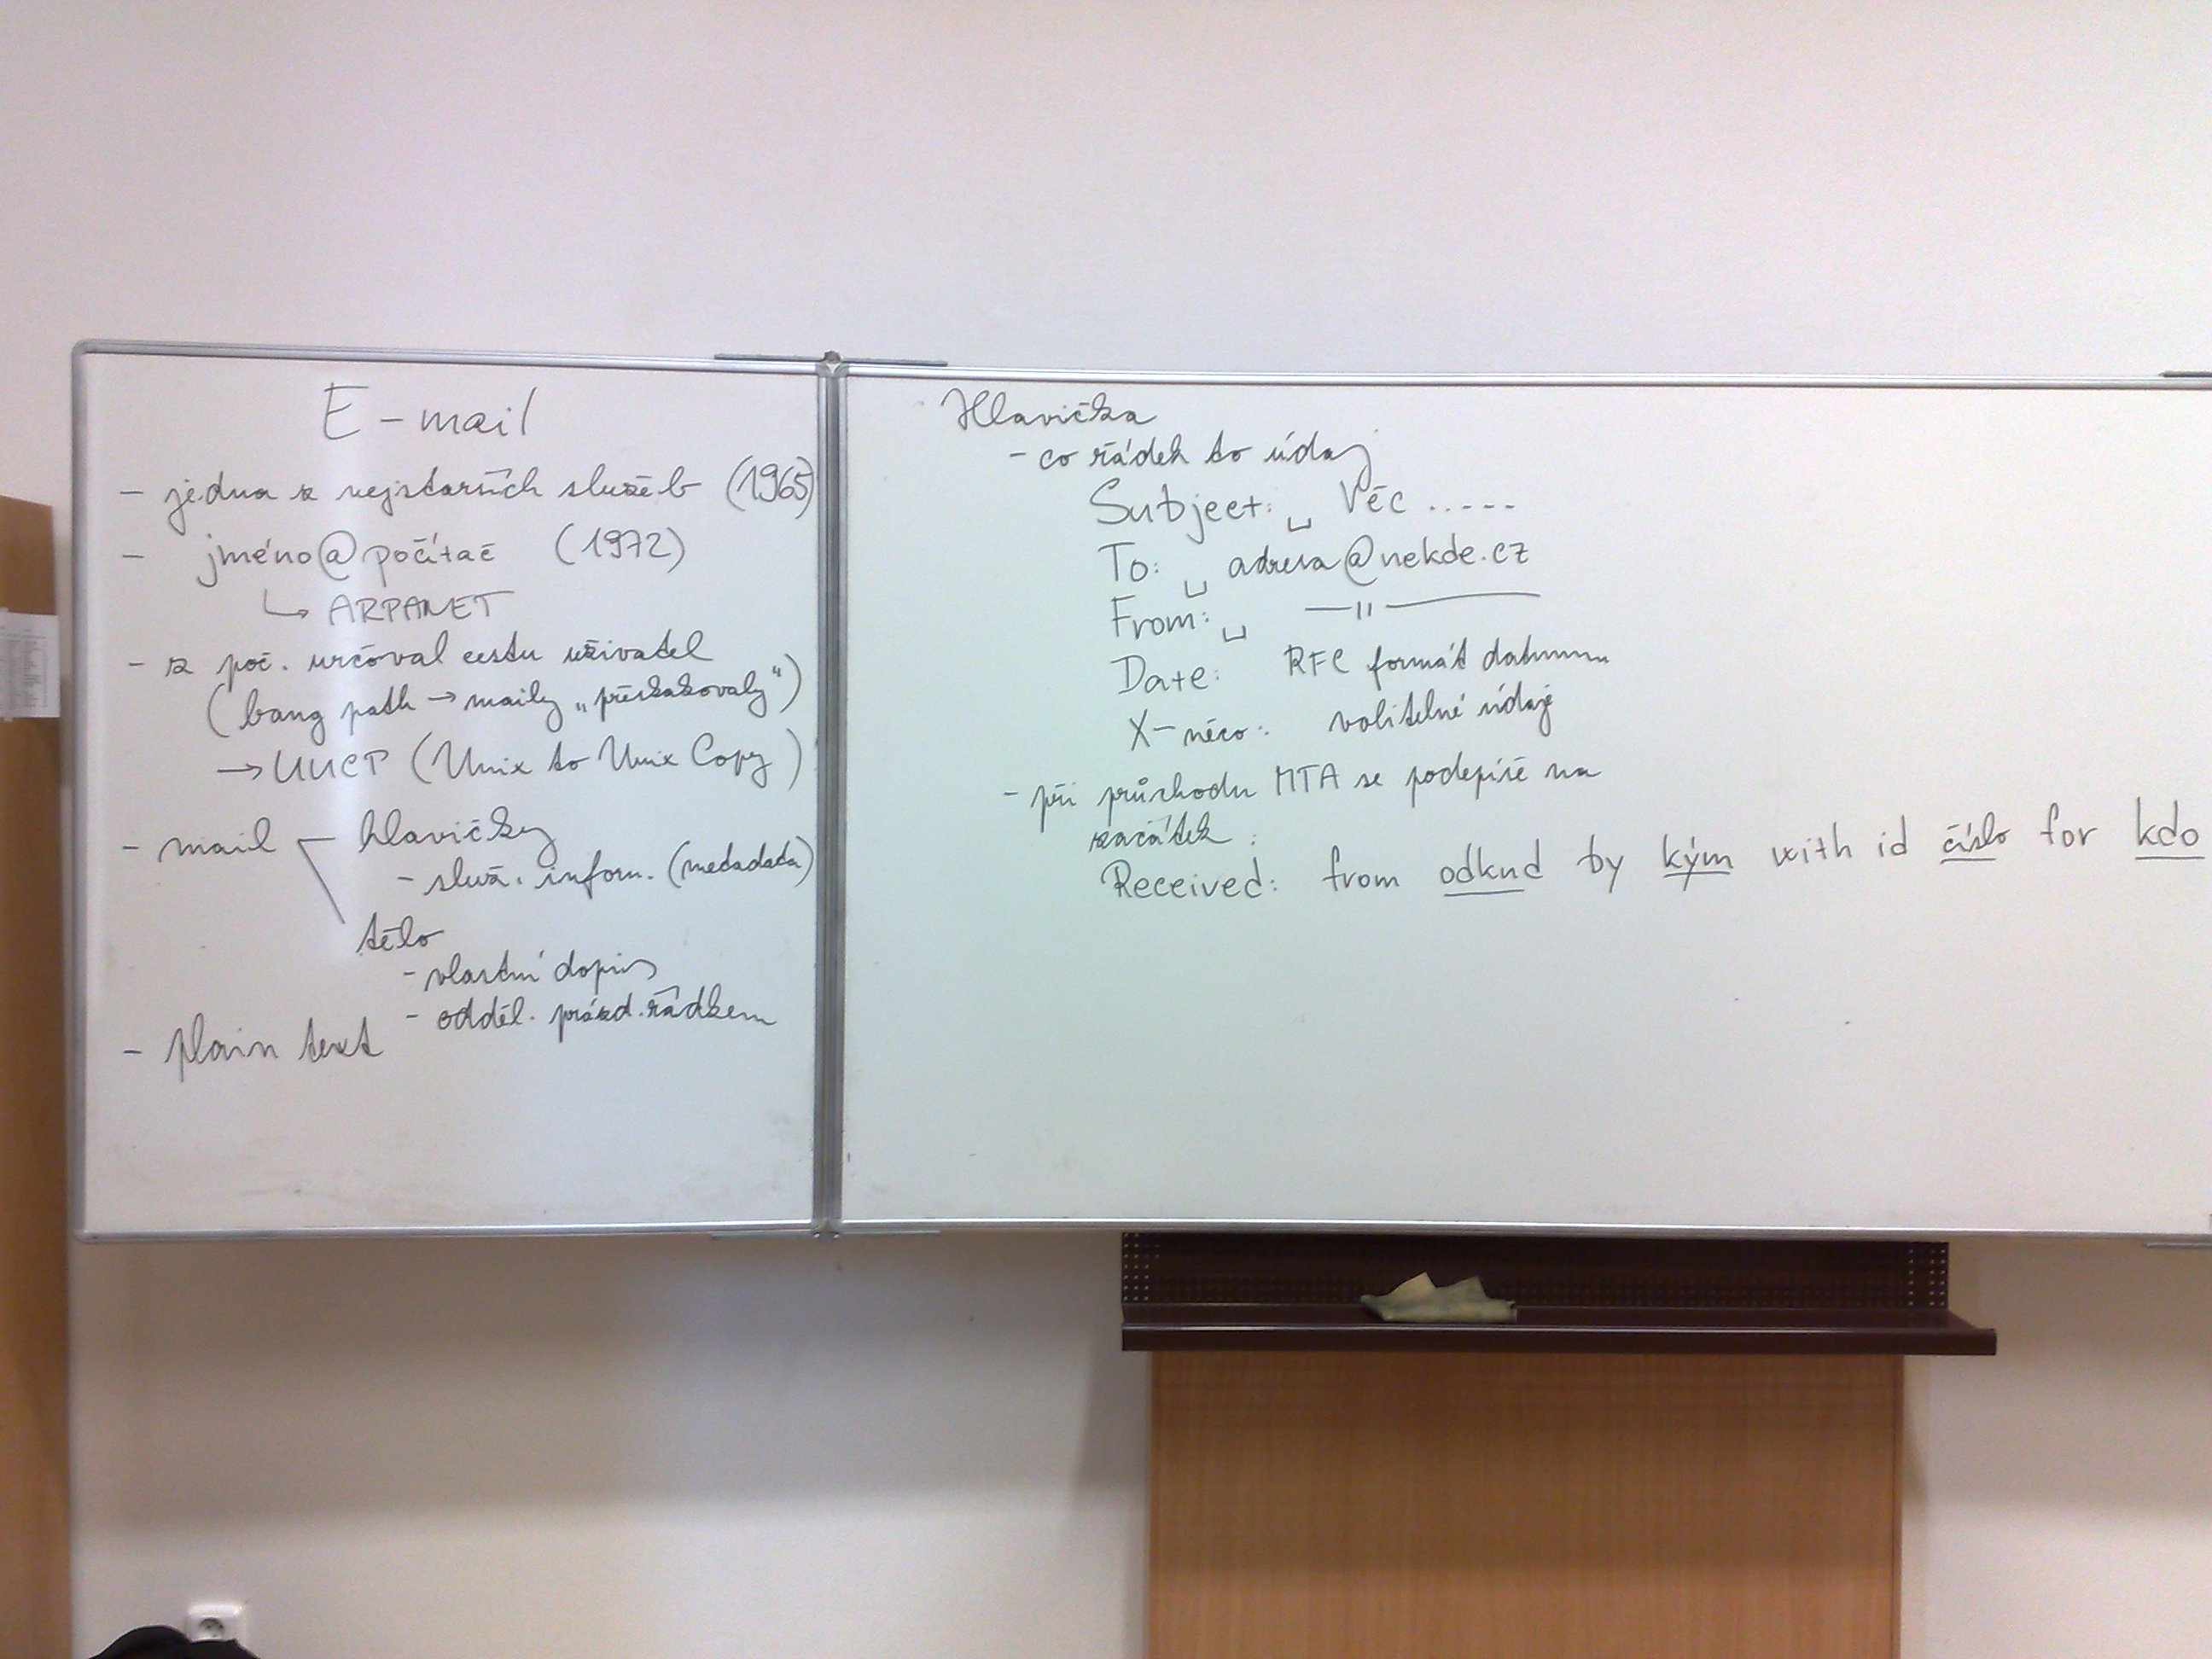 E-mail
- jedna z nejstarších služeb (1965)
- jméno@počítač (1972)
↳ ARPANET
- z poč. určoval cestu uživatel
(bang path → maily „přeskakovaly“)
→ UUCP (Unix to Unix Copy)
- mail hlavičky
- služ. inform. (metadata)
tělo
- vlastní dopis
- odděl. prázd. řádkem
- plain text
Hlavička
- co řádek to údaj
Subject:␣ Věc .....
To:␣ adresa@nekde.cz
From:␣ —"—
Date: RFC formát datumu
X-něco: volitelné údaje
- při průchodu MTA se podepíše na
začátek:
Received: from odkud by kým with id číslo for kdo